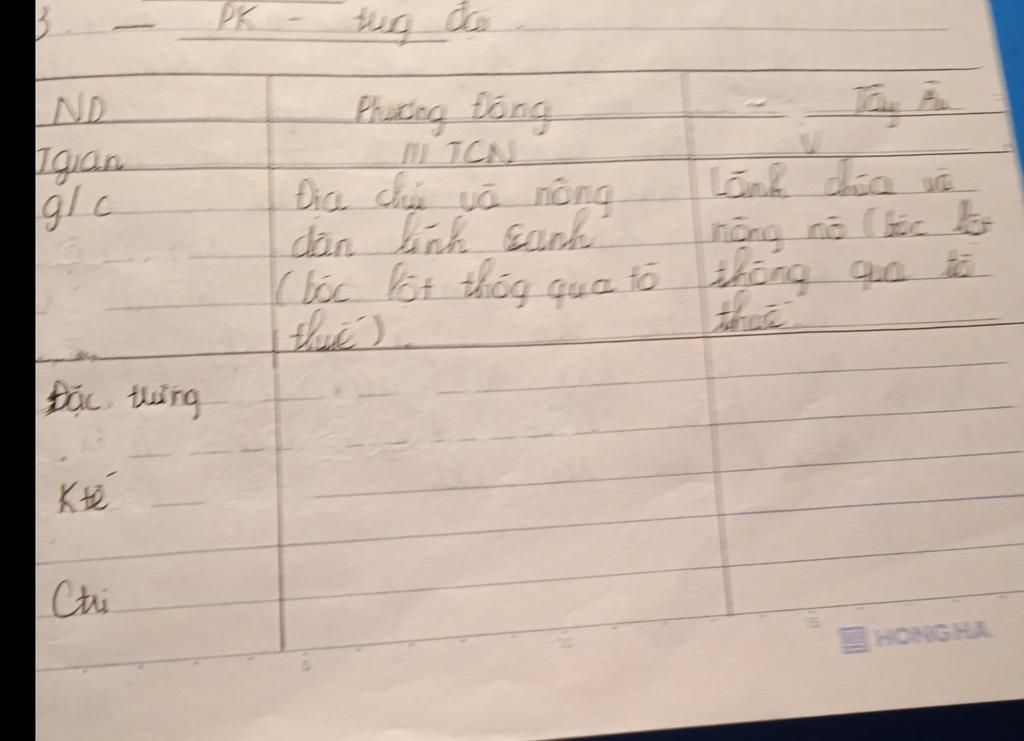 3. — PK - tug đại
ND Phương Đông - Tây Âu
Tgian III TCN V
g/c Địa chủ và nông Lãnh chúa và
dân lĩnh canh nông nô (bóc lột
(bóc lột thôg qua tô thông qua tô
thuế). thuế.
Đặc trưng
Ktế
Ctrị
5 10 15
HONG HA